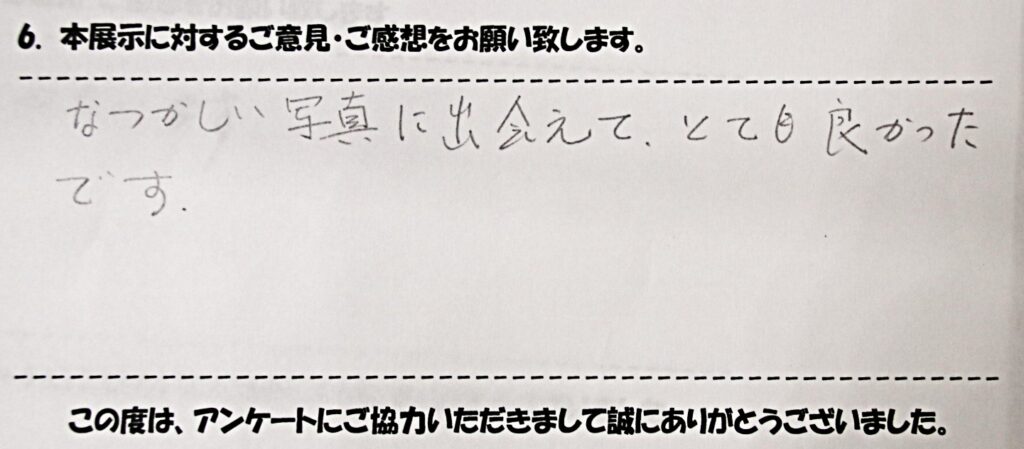 6. 本展示に対するご意見・ご感想をお願い致します。
なつかしい写真に出会えて、とても良かった
です.
この度は、アンケートにご協力いただきまして誠にありがとうございました。